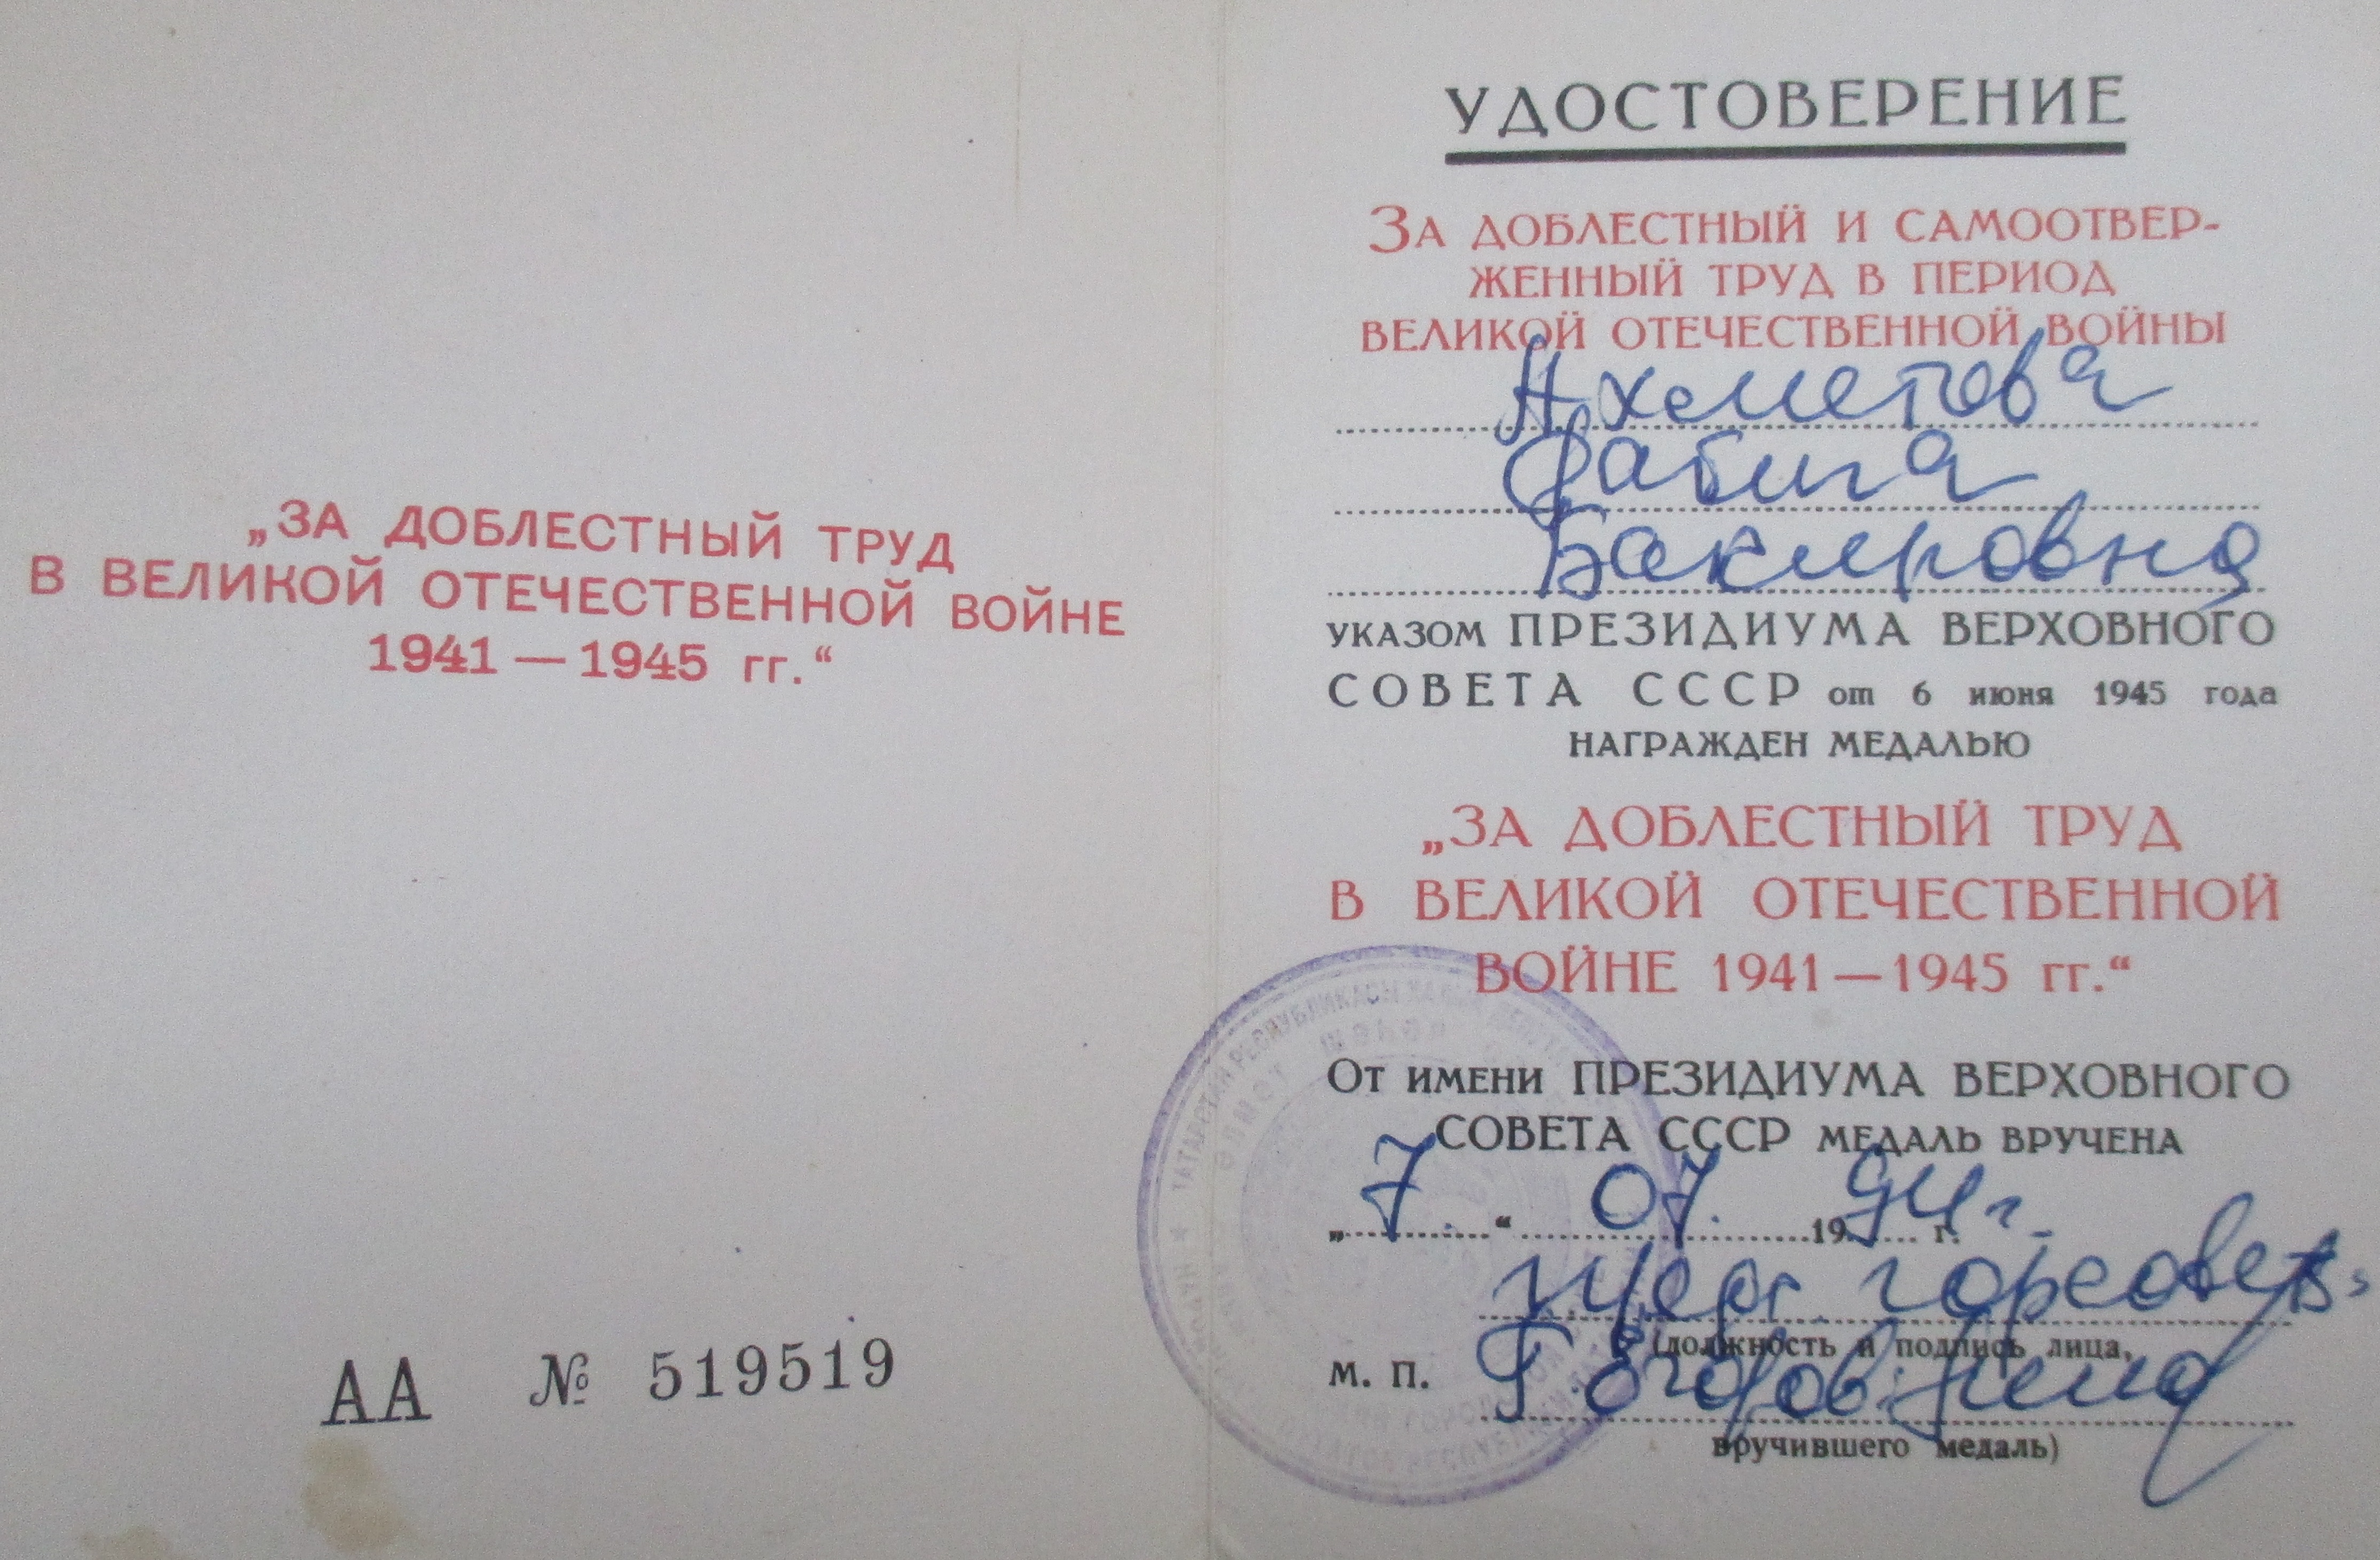 „ЗА ДОБЛЕСТНЫЙ ТРУД
В ВЕЛИКОЙ ОТЕЧЕСТВЕННОЙ ВОЙНЕ
1941 — 1945 гг.“
АА № 519519
УДОСТОВЕРЕНИЕ
ЗА ДОБЛЕСТНЫЙ И САМООТВЕР-
ЖЕННЫЙ ТРУД В ПЕРИОД
ВЕЛИКОЙ ОТЕЧЕСТВЕННОЙ ВОЙНЫ
Ахметова
Фабига
Бакировна
УКАЗОМ ПРЕЗИДИУМА ВЕРХОВНОГО
СОВЕТА СССР от 6 июня 1945 года
НАГРАЖДЕН МЕДАЛЬЮ
„ЗА ДОБЛЕСТНЫЙ ТРУД
В ВЕЛИКОЙ ОТЕЧЕСТВЕННОЙ
ВОЙНЕ 1941 — 1945 гг.“
ОТ ИМЕНИ ПРЕЗИДИУМА ВЕРХОВНОГО
СОВЕТА СССР МЕДАЛЬ ВРУЧЕНА
„7.“ 07. 1994 г. г.
горсовета
(должность и подпись лица,
М. П.
вручившего медаль)
ТАТАРСТАН РЕСПУБЛИКАСЫ